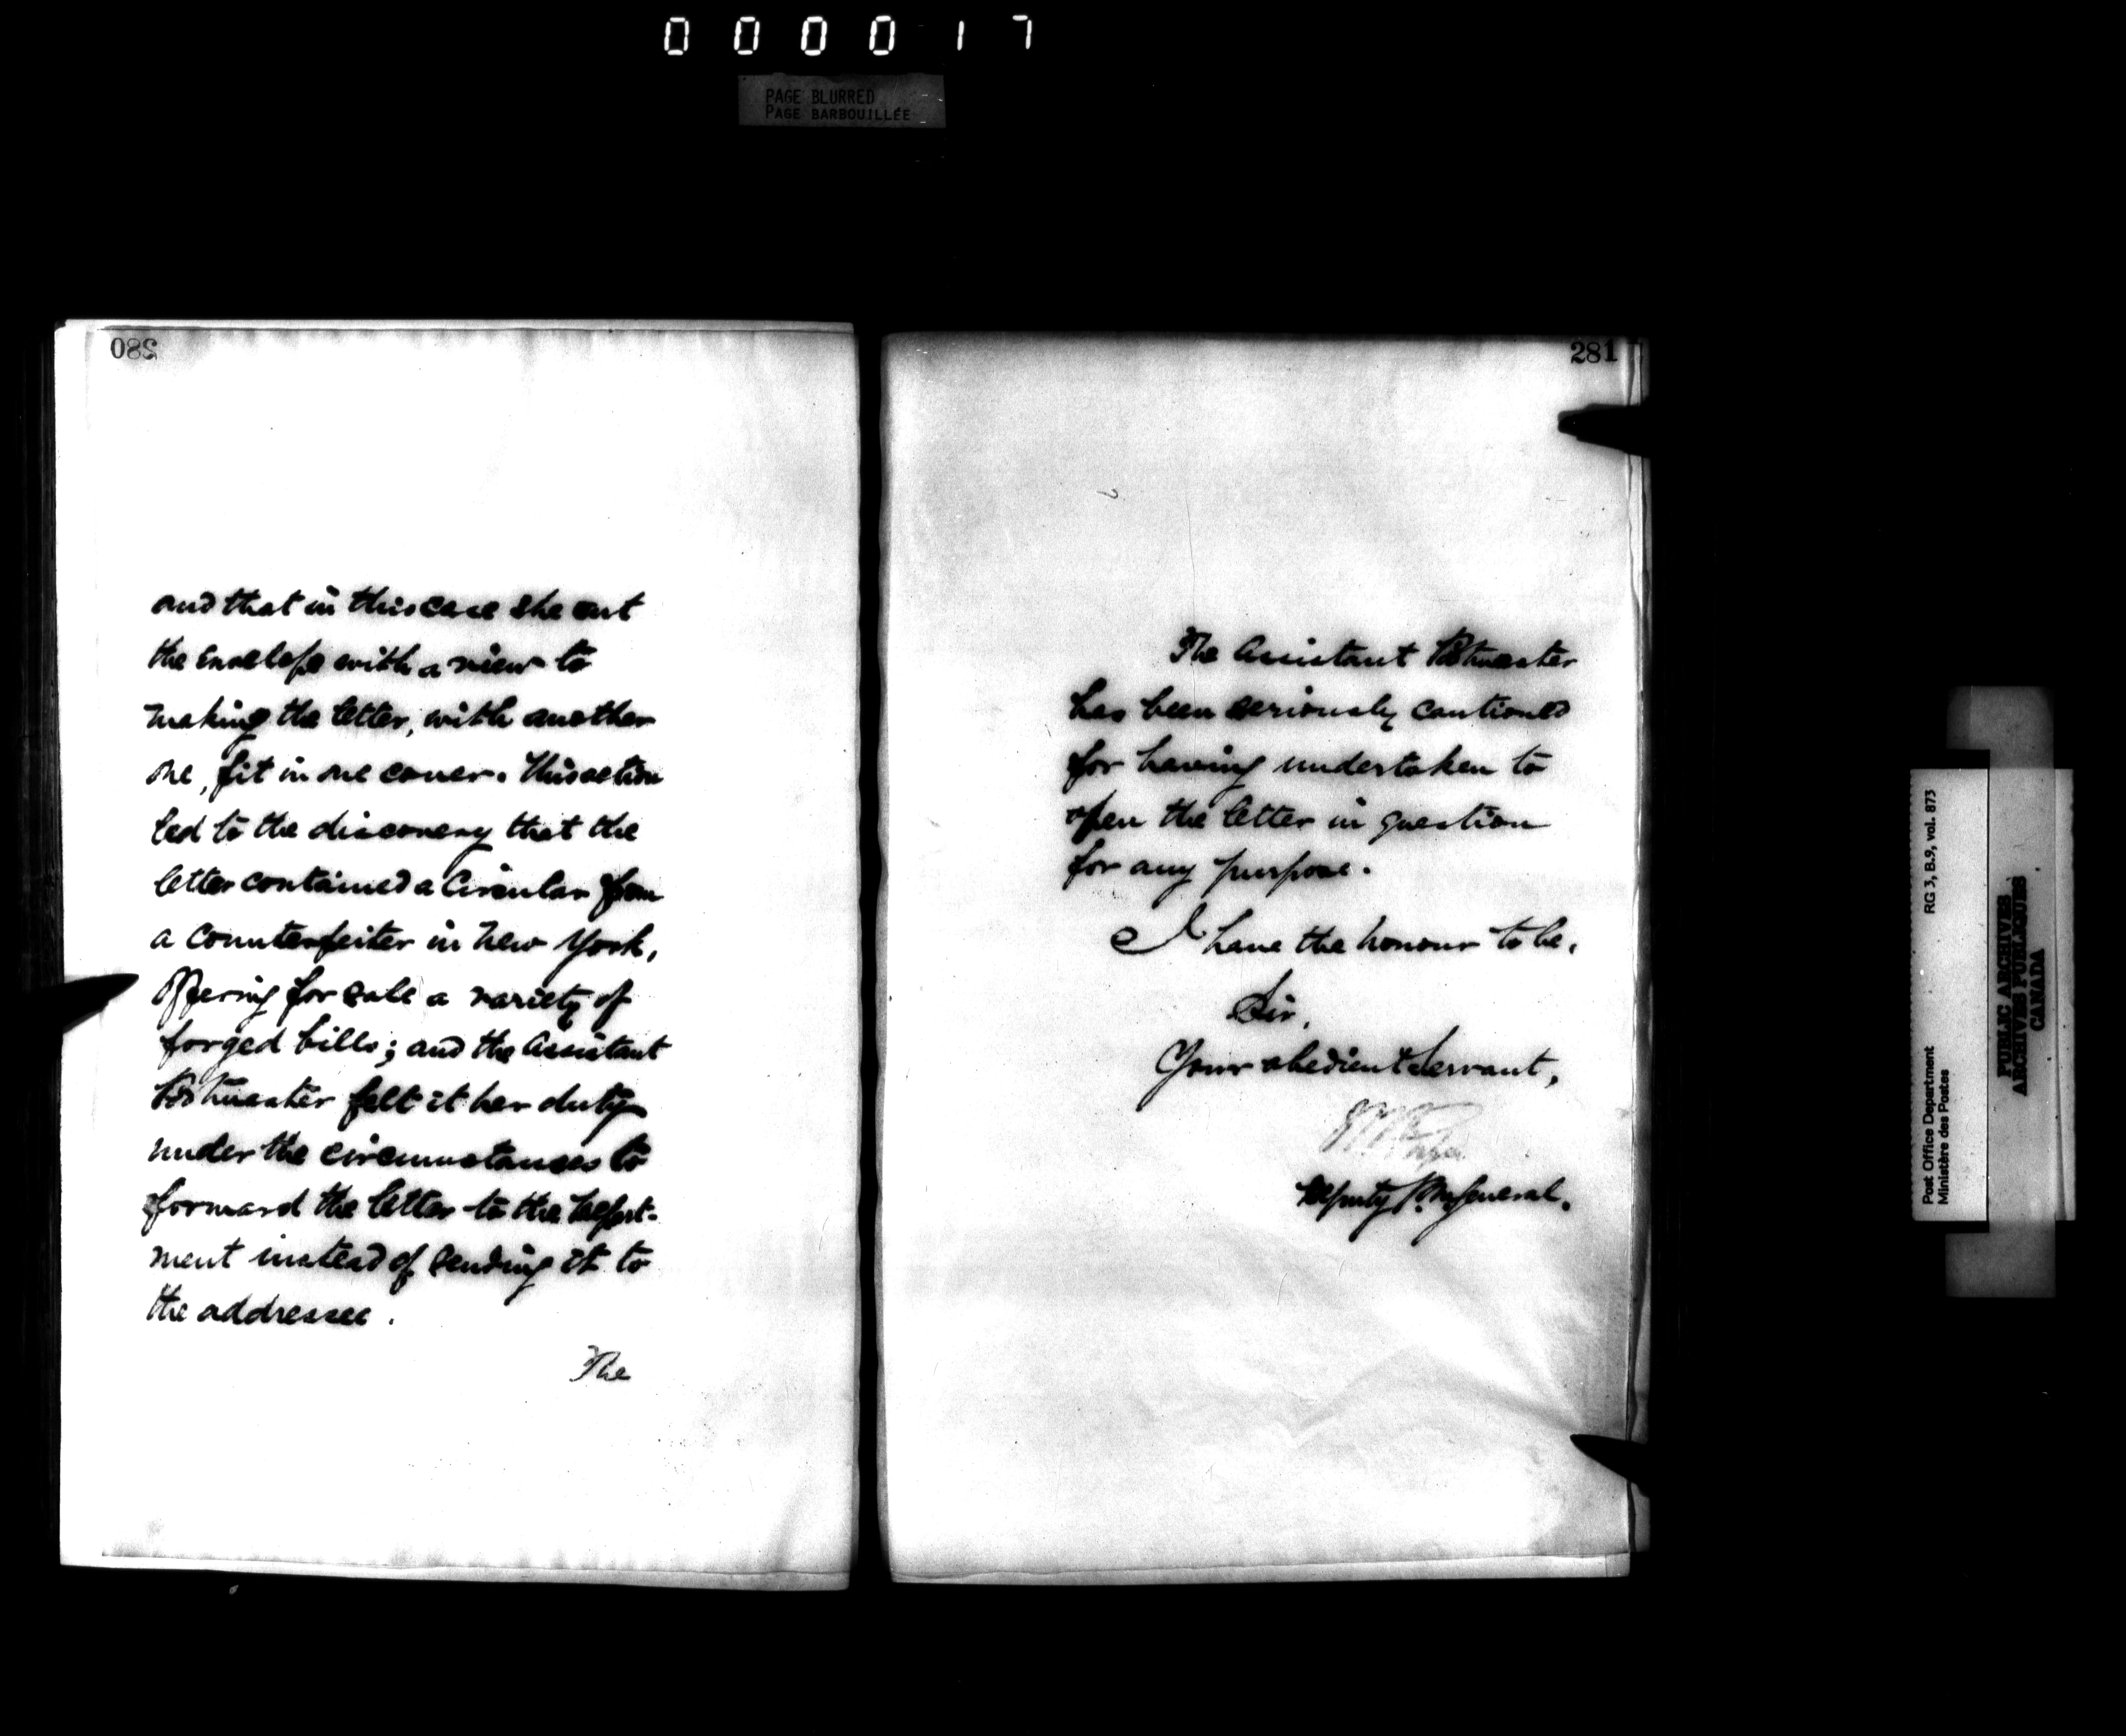 000017
PAGE BLURRED
PAGE BARBOUILLÉE
280
and that in this case she cut
the Envelope with a view to
making the letter, with another
one, fit in one cover. This action
led to the discovery that the
letter contained a Circular from
a Counterfeiter in New York,
offering for sale a variety of
forged bills; and the Assistant
Postmaster felt it her duty
under the circumstances to
forward the letter to the Depart-
ment instead of sending it to
the addressee.
The
281
The Assistant Postmaster
has been seriously cautioned
for having undertaken to
open the letter in question
for any purpose.
I have the honour to be,
Sir,
Your obedient Servant,
Deputy P.M. General.
Post Office Department
Ministère des Postes
RG 3, B.9, vol. 873
PUBLIC ARCHIVES
ARCHIVES PUBLIQUES
CANADA